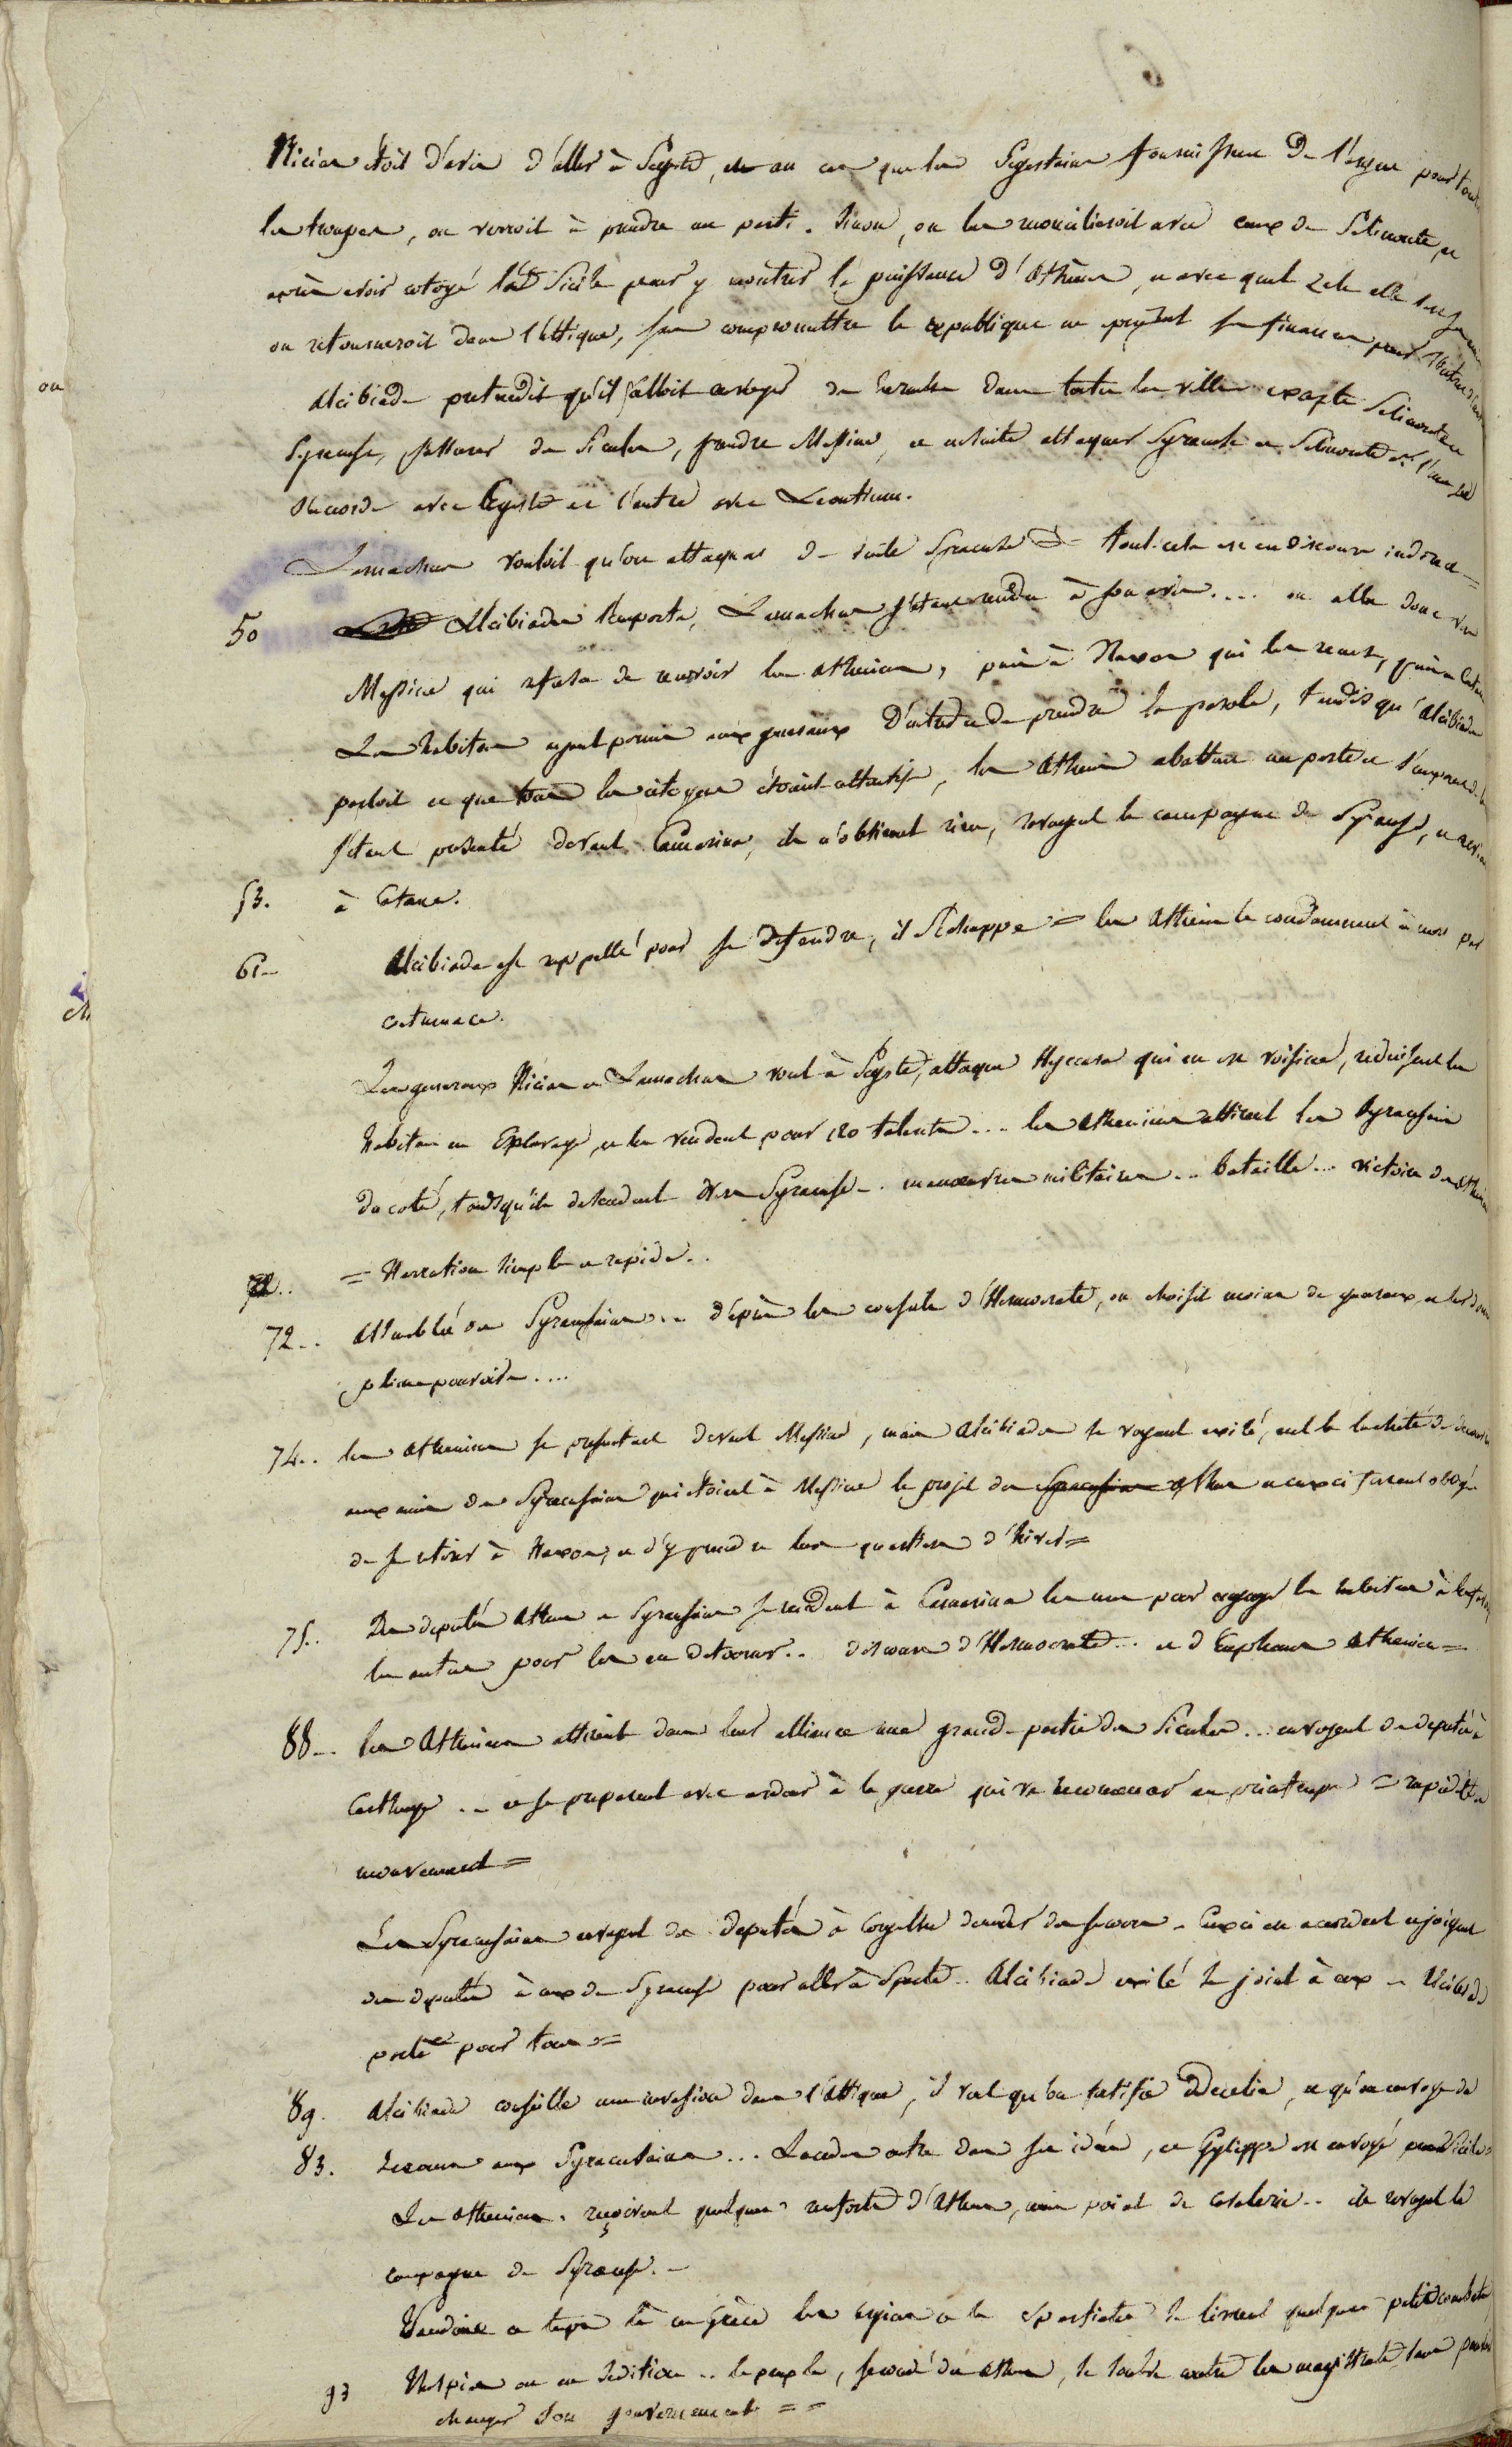 Nicias étoit d'avis d'aller à Segeste, et au cas que les Segestains fournissent de l'argent pour toutes
les troupes, on verroit à prendre un parti. Sinon, on les reconcilieroit avec ceux de Selinonte, et
après avoir cotoyé la Sicile pour y montrer la puissance d'Athènes, et avec quel zele elle
on retourneroit dans l'Attique, sans compromettre la republique en ses finances pour
Alcibiade pretendit qu'il falloit envoyer des herauts dans toutes les villes excepté Selinonte et
Syracuse, s'assurer des Sicules, prendre Messine, et ensuite attaquer Syracuse et Selinonte si l'une ne
s'accorde avec Egeste et l'autre avec Leontium.
Lamachus vouloit qu'on attaquat de suite Syracuse = tout cela est en discours indirect =
50 Alcibiades l'emporta, Lamachus s'étant rendu à son avis.... on alla donc vers
Messine qui refusa de recevoir les atheniens, puis à Naxos qui les reçut, puis à Catane
Les habitans ayant permis aux generaux d'entrer et de prendre la parole, tandis qu'Alcibiade
parloit et que tous les citoyens étoient attentifs, les Atheniens abattent une porte et s'emparent de la
s'étant presenté devant Camarina, ils n'obtiennent rien, ravagent la campagne de Syracuse, et
53. à Catane.
61.. Alcibiade est rappellé pour se defendre, il s'echappe = les Atheniens le condamnent à mort par
contumace.
Les generaux Nicias et Lamachus vont à Segeste, attaquent Hyccara qui en est voisine, reduisent les
habitans en Esclavage, et les vendent pour 120 talents... les atheniens attirent les Syracusains
de coté, tandis qu'ils descendent vers Syracuse.. manoeuvres militaires... bataille... victoire des Atheniens
72.. = Narration simple et rapide..
72.. Assemblée des Syracusains... d'après les conseils d'Hermocrate, on choisit moins de generaux et on leur donne
pleins pouvoirs....
74.. les atheniens se presentent devant Messine, mais Alcibiades se voyant exilé, eut la lacheté de decouvrir
aux amis des Syracusains qui étoient à Messine le projet des Athen. et ceux ci furent obligés
de se retirer à Naxos, et d'y prendre leurs quartiers d'hiver =
75.. Des deputés Athen. et Syracusains se rendent à Camarina les uns pour engager les habitans à
les autres pour les en detourner.. discours d'Hermocrate... et d'Euphemus Athenien =
88... les Atheniens attirent dans leur alliance une grande partie des Sicules... envoyent des deputés à
Carthage... et se preparent avec ardeur à la guerre qui va recommencer au printemps = rapidité et
mouvement =
Les Syracusains envoyent des deputés à Corynthe demander des secours. Ceux ci en accordent et joignent
des deputés à ceux de Syracuse pour aller à Sparte.. Alcibiade exilé se joint à eux = Alcibiade
parle pour tous =
89. Alcibiade conseille une invasion dans l'Attique, il veut qu'on fortifie Decelie, et qu'on envoye des
83. Secours aux Syracusains... Laced. entre dans ses idées, et Gylippe est envoyé en Sicile =
Les Atheniens reçoivent quelques renforts d'Athenes, mais point de Cavalerie.. ils ravagent la
campagne de Syracuse. =
Vers ce tems là en Grèce les argiens et les spartiates se livrent quelques petits combats
93 Thespies est en sedition.. le peuple, secondé des Athen., se souleve contre les magistrats, sans pouvoir
changer son gouvernement = =